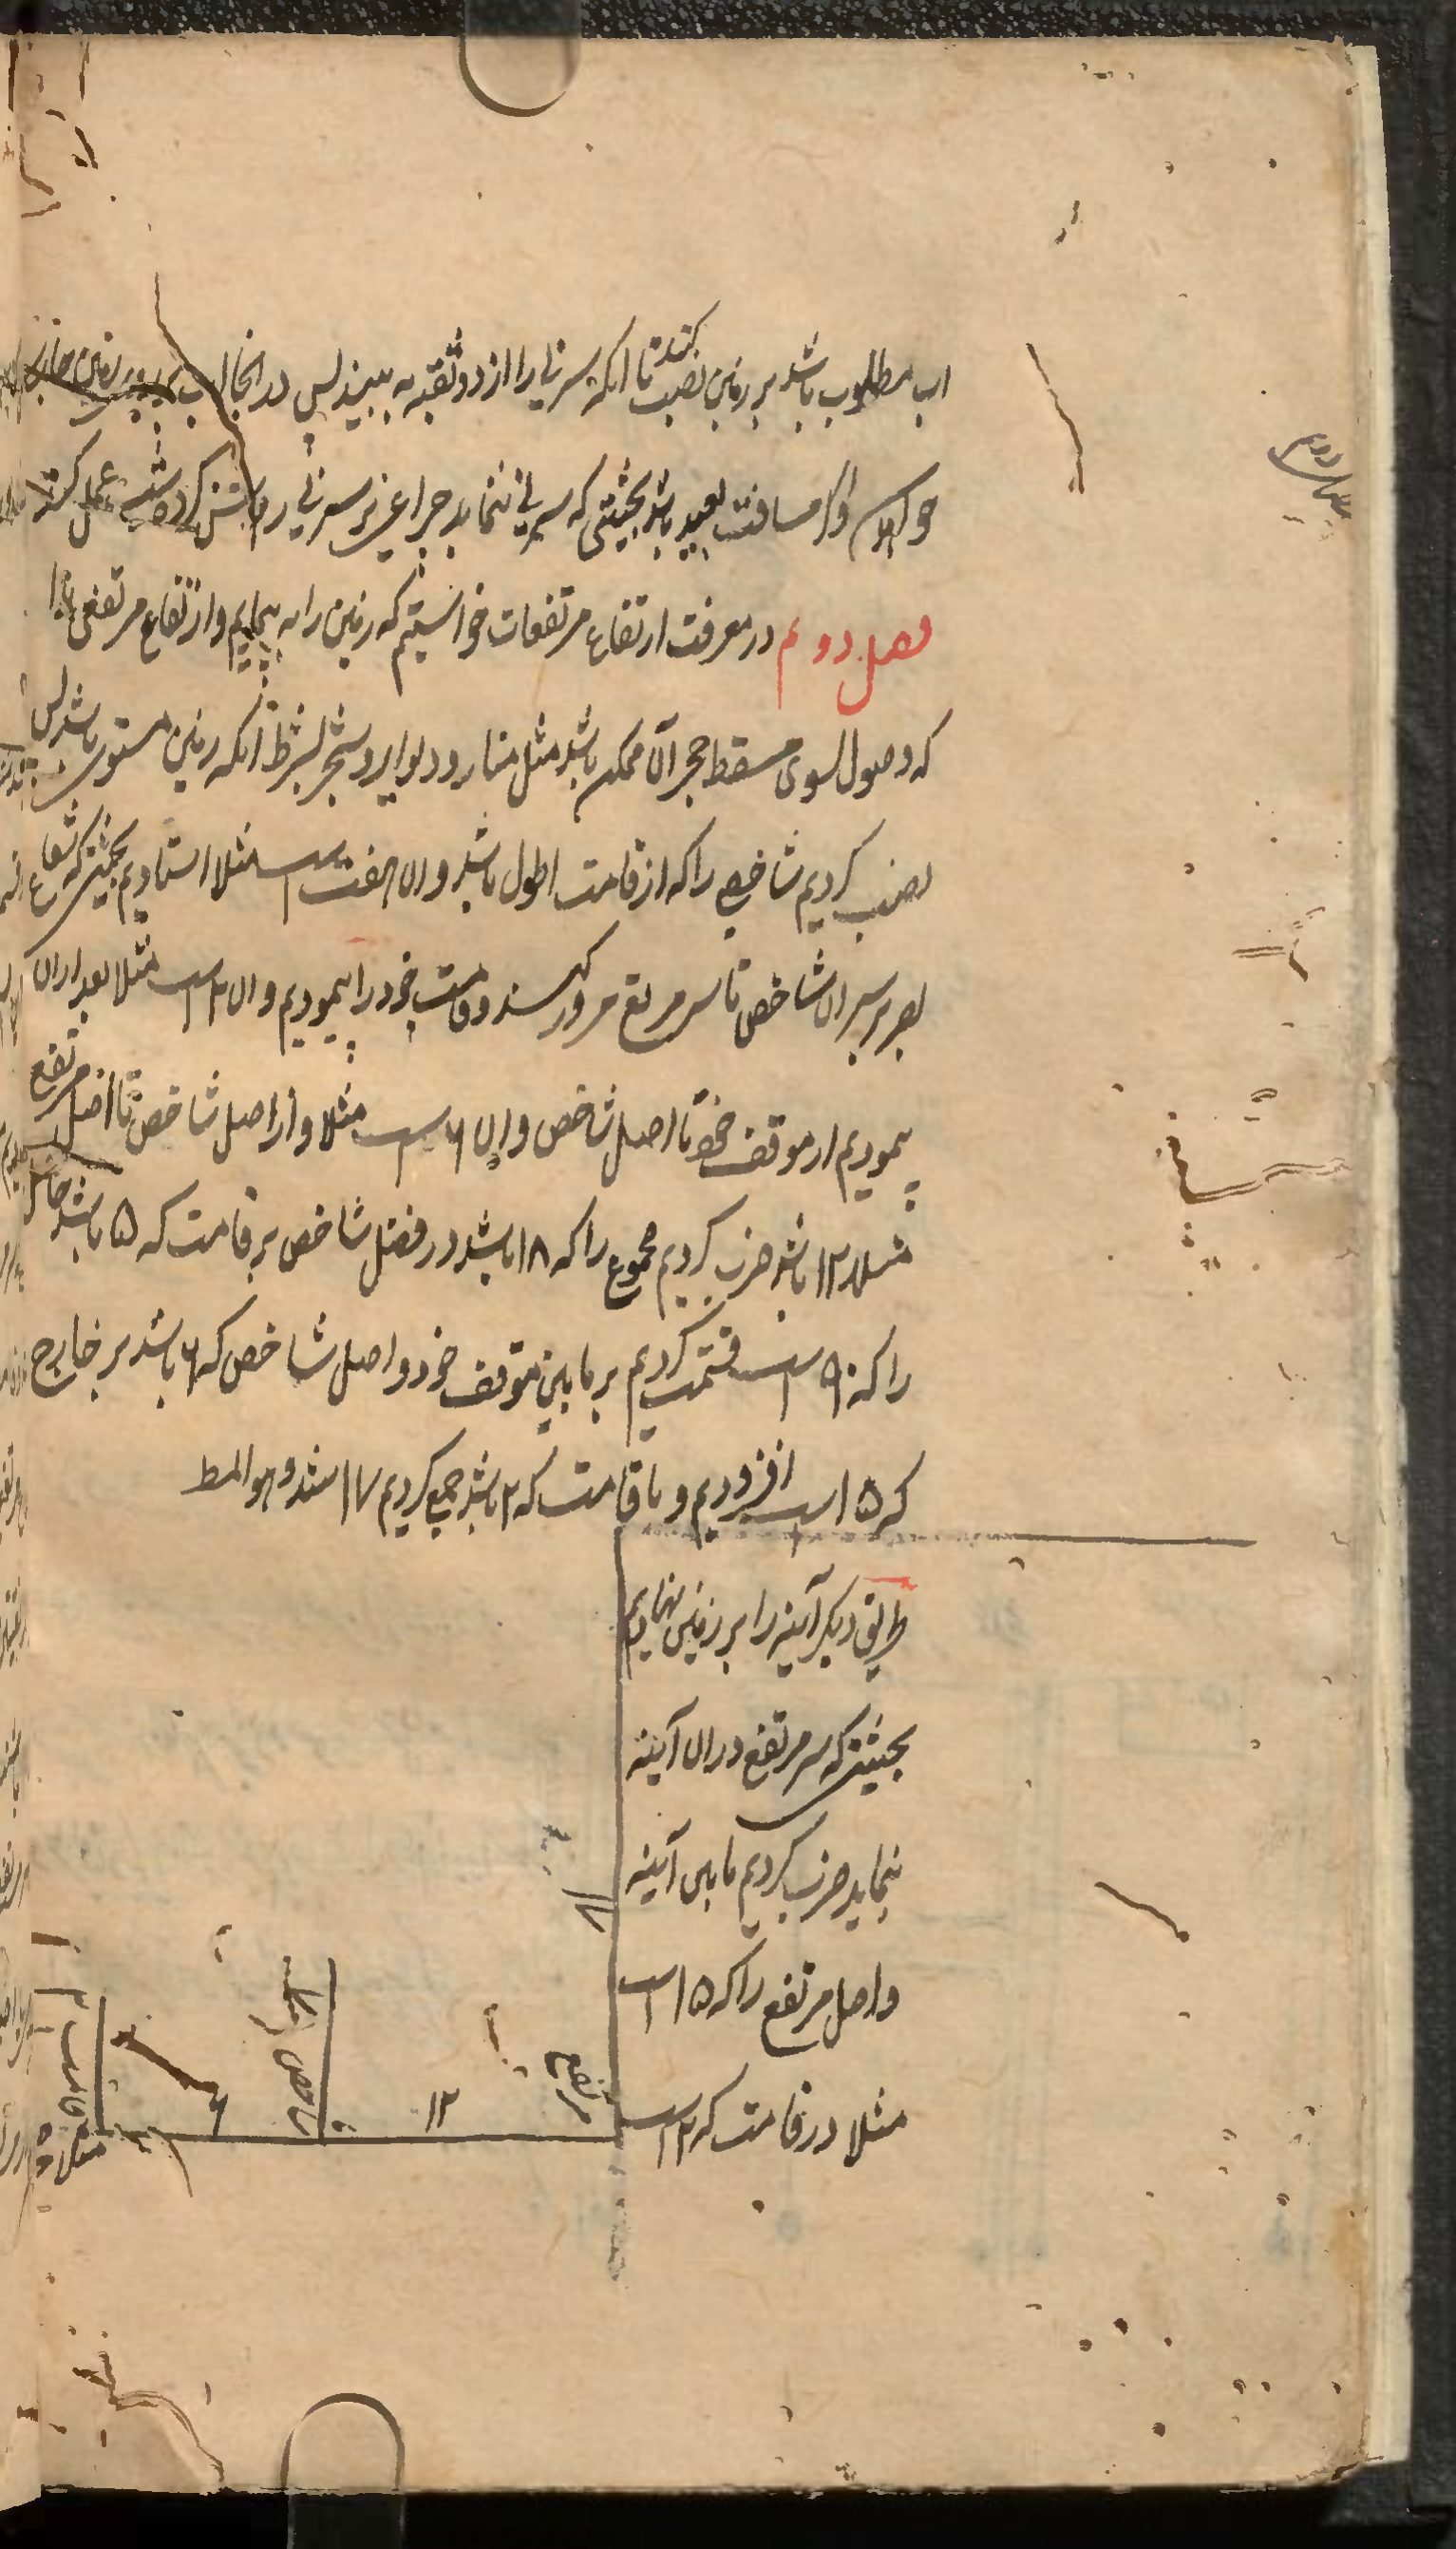 اب مطلوب باشد بر زمین نصب کنند تا انکه سر نی را از دو ثقبه به بیند پس در انجا اب بر روی زمین جاری
خواهد و اگر مسافت بعید باشد بحیثیتی که سر نی ننماید چراغی بر سر نی روشن کرده شب عمل کنند
فصل دوم در معرفت ارتفاع مرتفعات خواستیم که زمین را به پیماییم و ارتفاع مرتفعی را
که وصول بسوی مسقط حجر آن ممکن باشد مثل منار و دیوار و شجر بشرط انکه زمین مستوی باشد پس
نصب کردیم شاخصی را که از قامت اطول باشد و ان هفت است مثلا استادیم بحیثیتی که شعاع
بصر بر سر ان شاخص تا سر مرتفع مرور کند و قامت خود را پیمودیم و ان ۲ است مثلا بعد از ان
پیمودیم از موقف خود تا اصل شاخص و ان ۶ است مثلا و از اصل شاخص تا اصل مرتفع
مثلا ۱۲ باشد ضرب کردیم مجموع را که ۱۸ باشد در فضل شاخص بر قامت که ۵ باشد حاصل
را که ۹۰ است قسمت کردیم بر مابین موقف خود و اصل شاخص که ۶ باشد بر خارج
که ۱۵ است افزودیم و با قامت که ۲ باشد جمع کردیم ۱۷ شد و هو المط
طریق دیکر آینه را بر زمین نهادیم
بحیثیتی که سر مرتفع در ان آینه
بنماید ضرب کردیم مابین آینه
و اصل مرتفع را که ۱۵ است
مثلا در قامت که ۲ است
مرتفع
۱۲
شاخص
۶
قامت ۲
مثلا